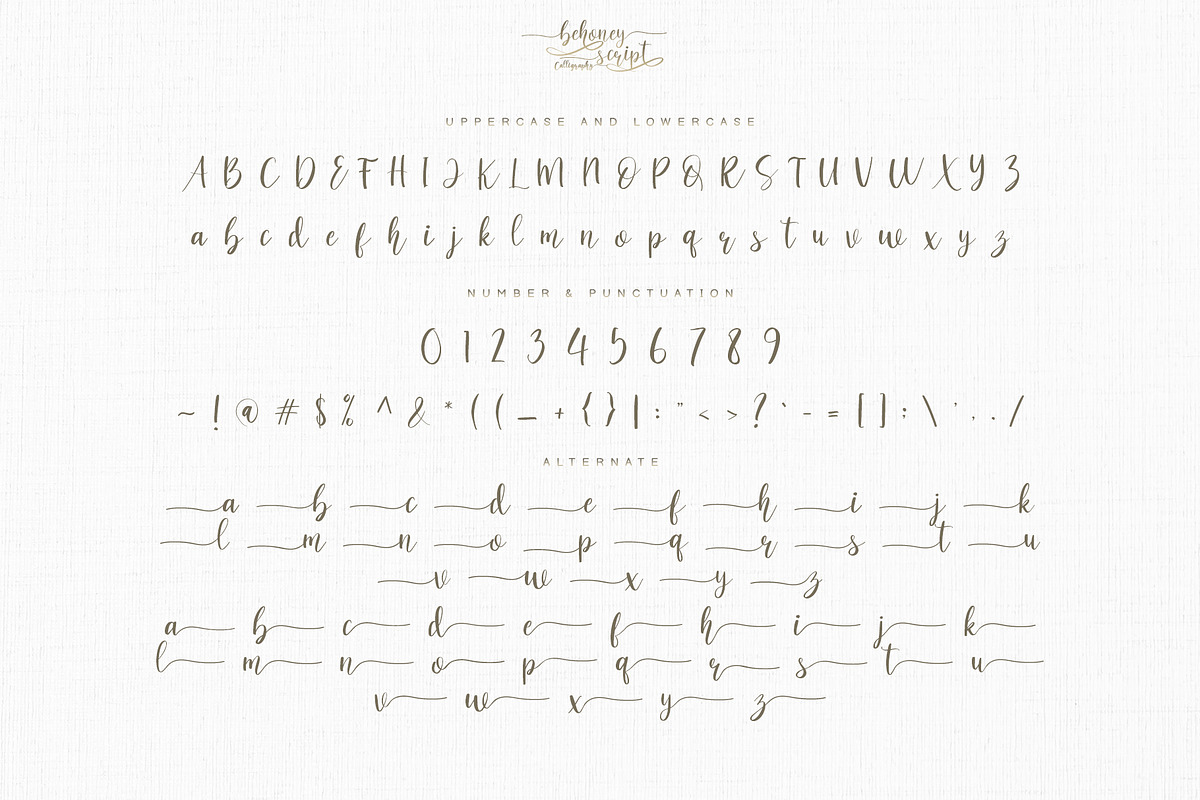 behoney
script
Calligraphy
UPPERCASE AND LOWERCASE
A B C D E F H I J K L M N O P Q R S T U V W X Y Z
a b c d e f h i j k l m n o p q r s t u v w x y z
NUMBER & PUNCTUATION
0 1 2 3 4 5 6 7 8 9
~ ! @ # $ % ^ & * ( ( _ + { } | : " < > ? ` - = [ ] ; \ ' , . /
ALTERNATE
a b c d e f h i j k
l m n o p q r s t u
v w x y z
a b c d e f h i j k
l m n o p q r s t u
v w x y z